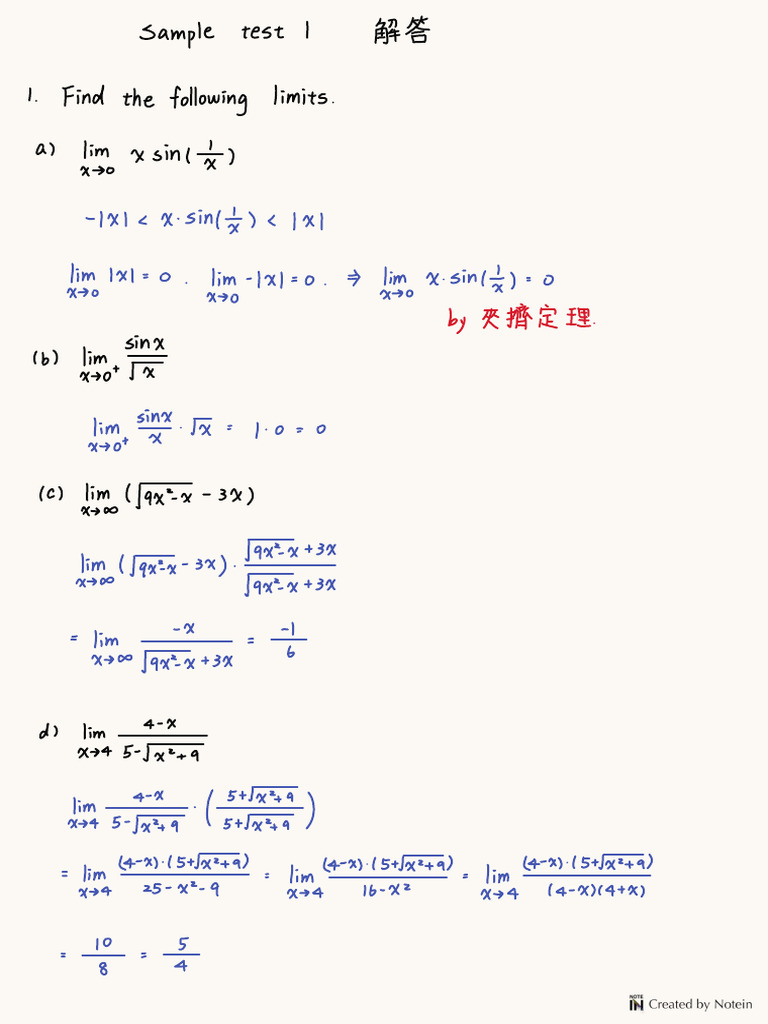 Sample test 1 解答
1. Find the following limits.
a) lim x→0 x sin(1/x)
-|x| < x·sin(1/x) < |x|
lim x→0 |x| = 0 . lim x→0 -|x| = 0 . ⇒ lim x→0 x·sin(1/x) = 0
by 夾擠定理.
(b) lim x→0⁺ sinx/√x
lim x→0⁺ sinx/x · √x = 1·0 = 0
(c) lim x→∞ (√(9x²-x) - 3x)
lim x→∞ (√(9x²-x) - 3x) · (√(9x²-x) + 3x)/(√(9x²-x) + 3x)
= lim x→∞ -x/(√(9x²-x) + 3x) = -1/6
d) lim x→4 (4-x)/(5-√(x²+9))
lim x→4 (4-x)/(5-√(x²+9)) · ((5+√(x²+9))/(5+√(x²+9)))
= lim x→4 (4-x)·(5+√(x²+9))/(25-x²-9) = lim x→4 (4-x)·(5+√(x²+9))/(16-x²) = lim x→4 (4-x)·(5+√(x²+9))/((4-x)(4+x))
= 10/8 = 5/4
NOTE IN Created by Notein